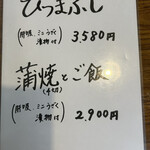 ひつまぶし
(肝吸、ミニうざく
漬物付)
3,580円
蒲焼とご飯
(4切)
(肝吸、ミニうざく
漬物付)
2,900円